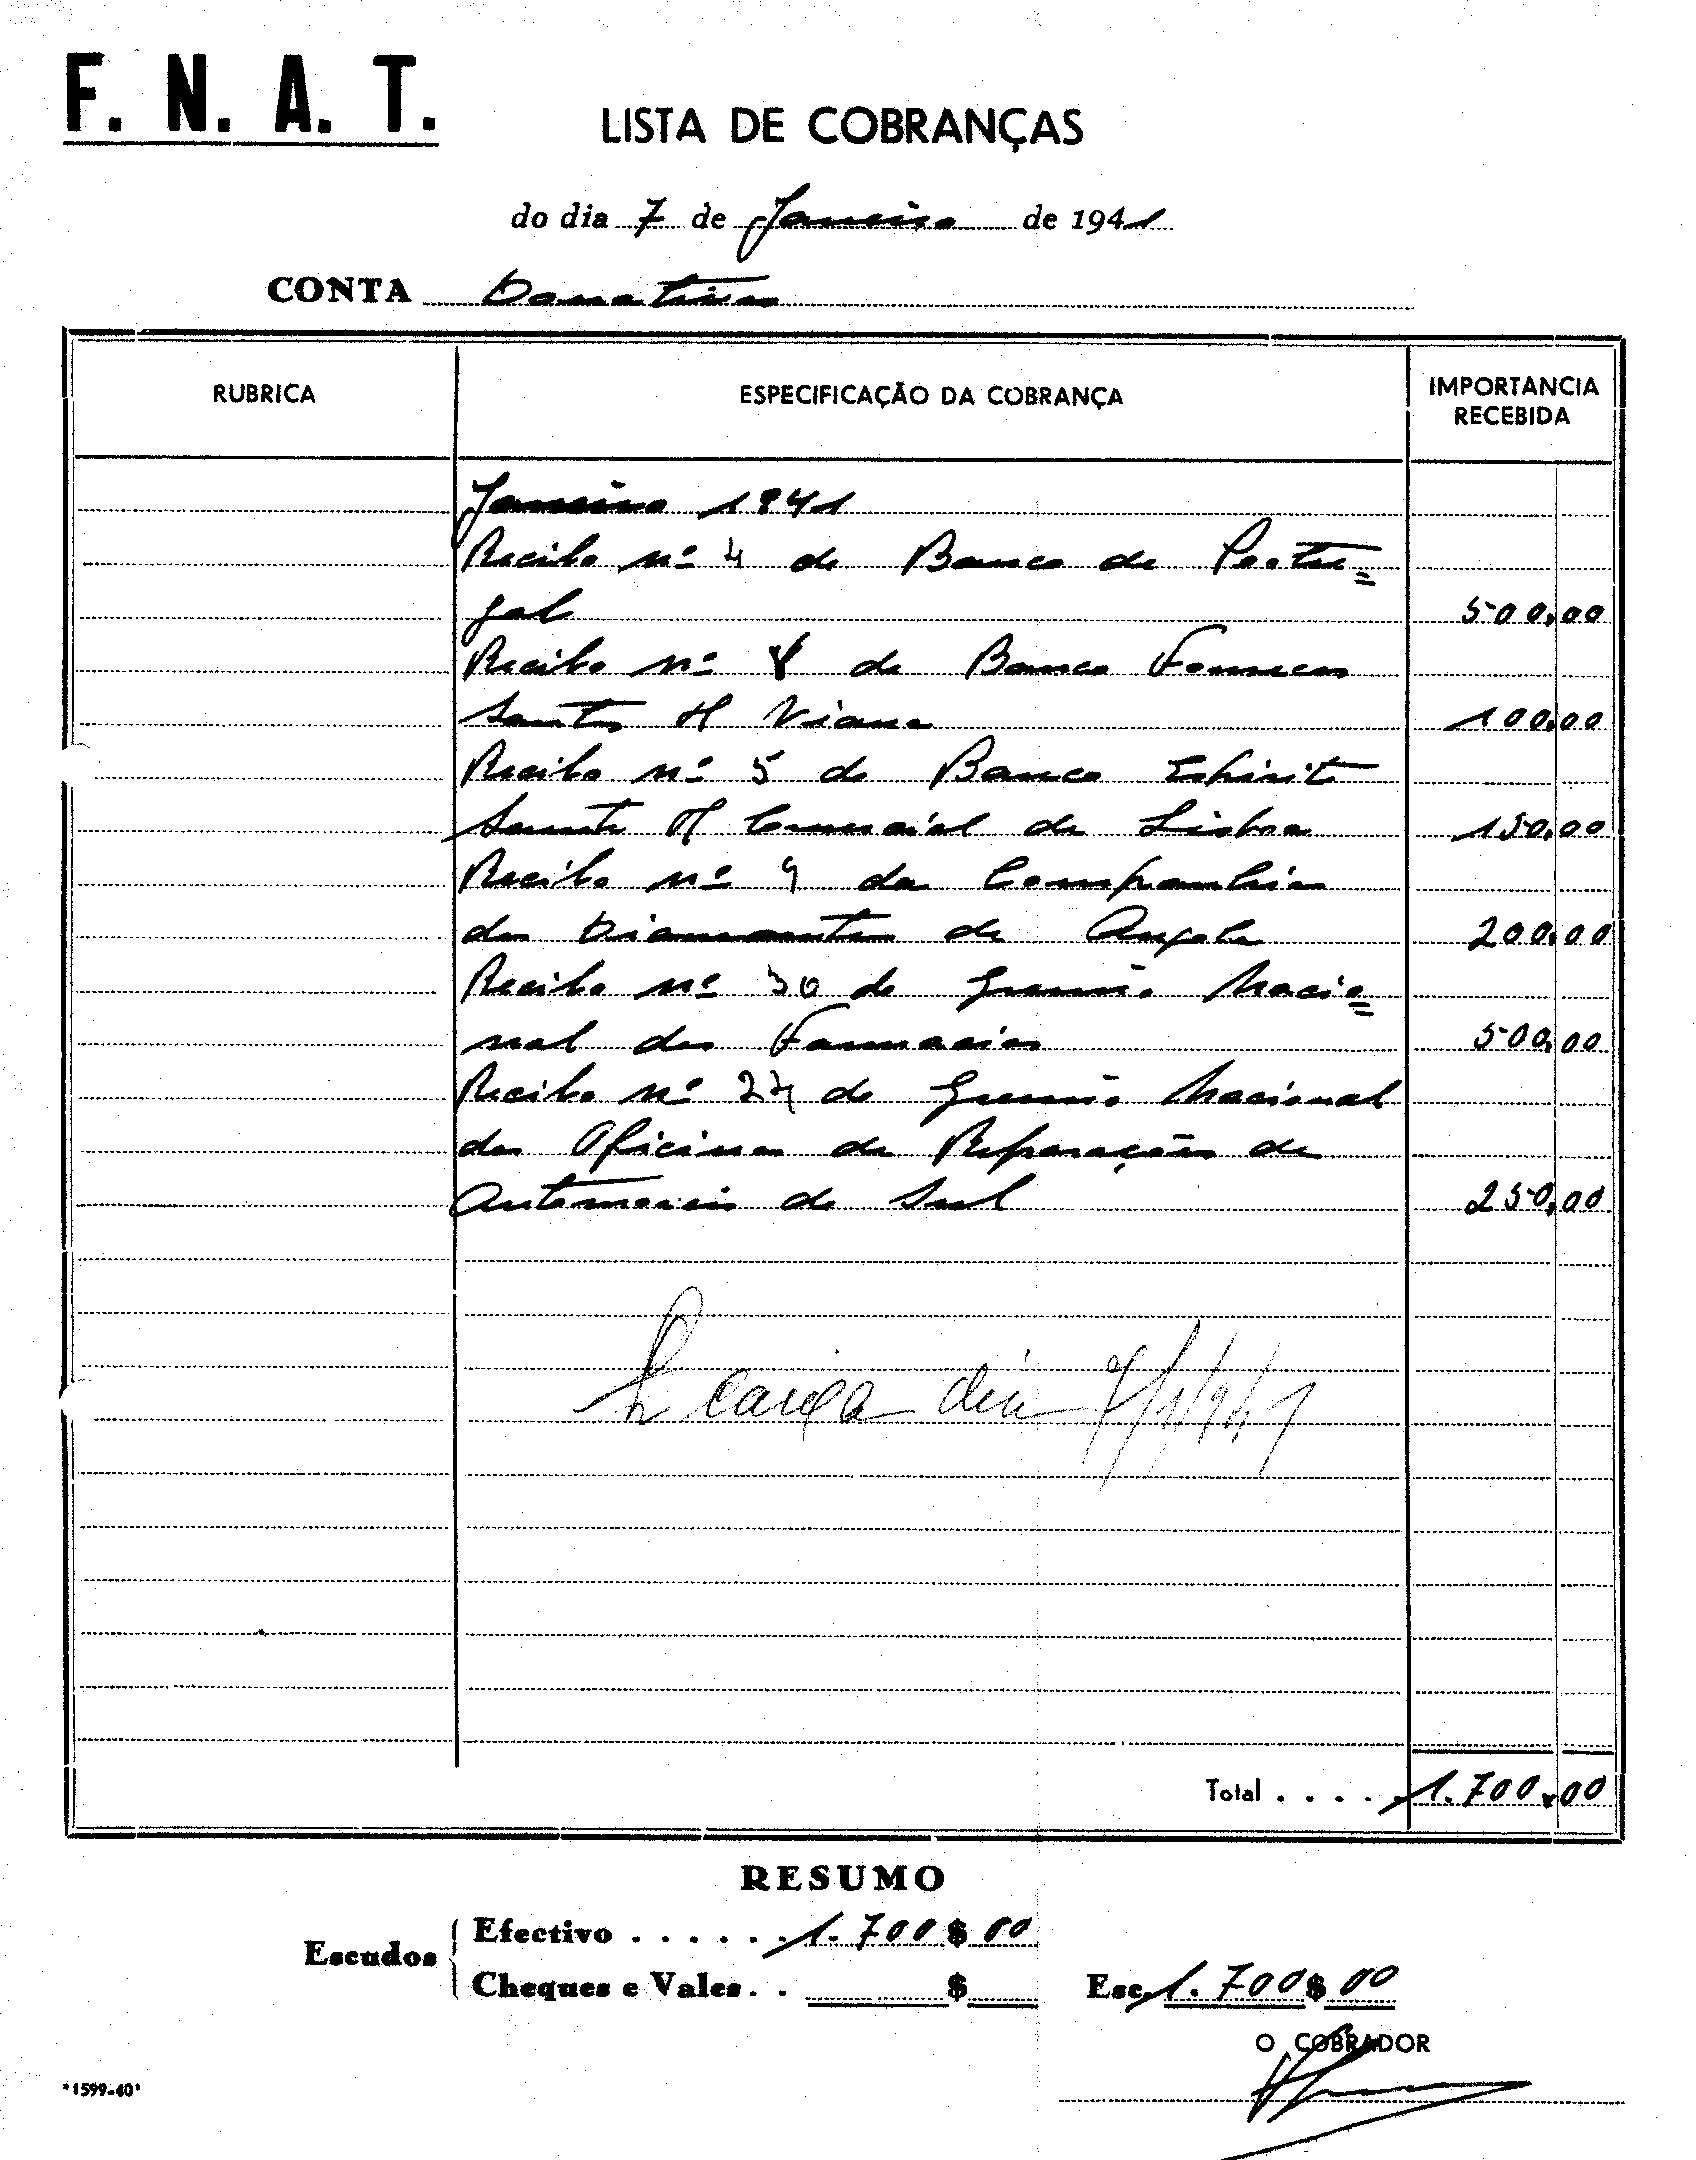 F. N. A. T.
LISTA DE COBRANÇAS
do dia 7 de Janeiro de 1941
CONTA Donativos
RUBRICA
ESPECIFICAÇÃO DA COBRANÇA
IMPORTANCIA
RECEBIDA
Janeiro 1941
Recibo nº 4 do Banco de Portu=
gal 500,00
Recibo nº 8 do Banco Fonsecas
Santos & Viana 100,00
Recibo nº 5 do Banco Espirito
Santo & Comercial de Lisboa 150,00
Recibo nº 9 da Companhia
dos Diamantes de Angola 200,00
Recibo nº 30 do Gremio Nacio=
nal das Farmacias 500,00
Recibo nº 24 do Gremio Nacional
das Oficinas de Reparações de
Automoveis do Sul 250,00
caixa dia 7/1/941
Total . . . . . 1.700,00
RESUMO
Escudos
Efectivo . . . . . . 1.700$00
Cheques e Vales . . $
Esc. 1.700$00
O COBRADOR
*1599-40*